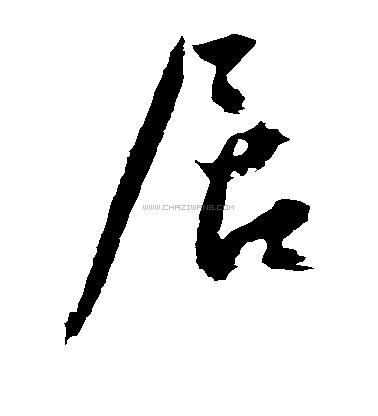 居
WWW.CHAZIWANG.COM